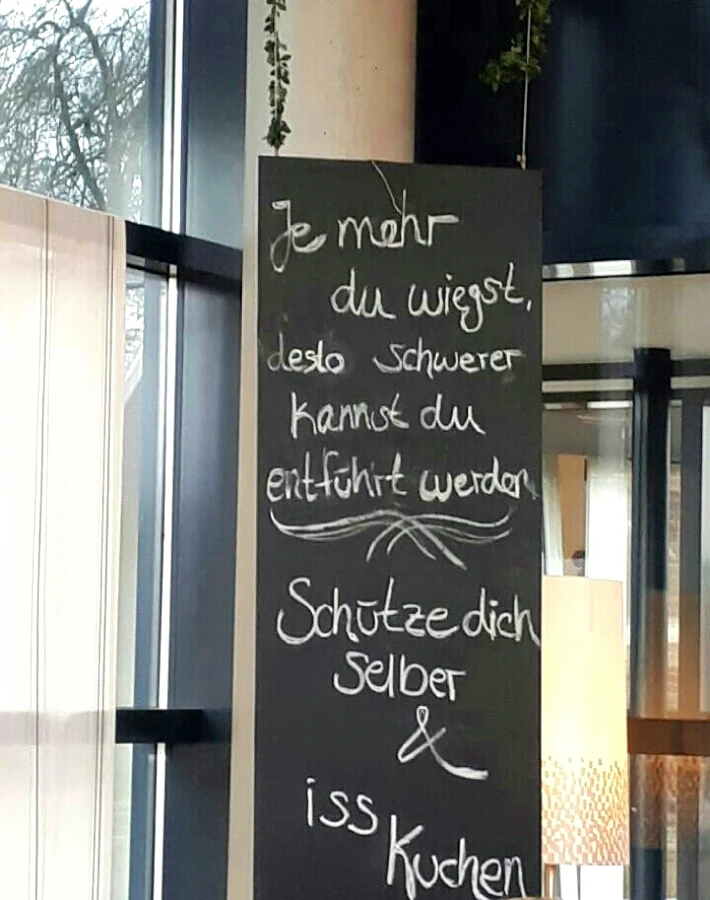 Je mehr
du wiegst,
desto schwerer
kannst du
entführt werden
Schütze dich
selber
&
iss
Kuchen